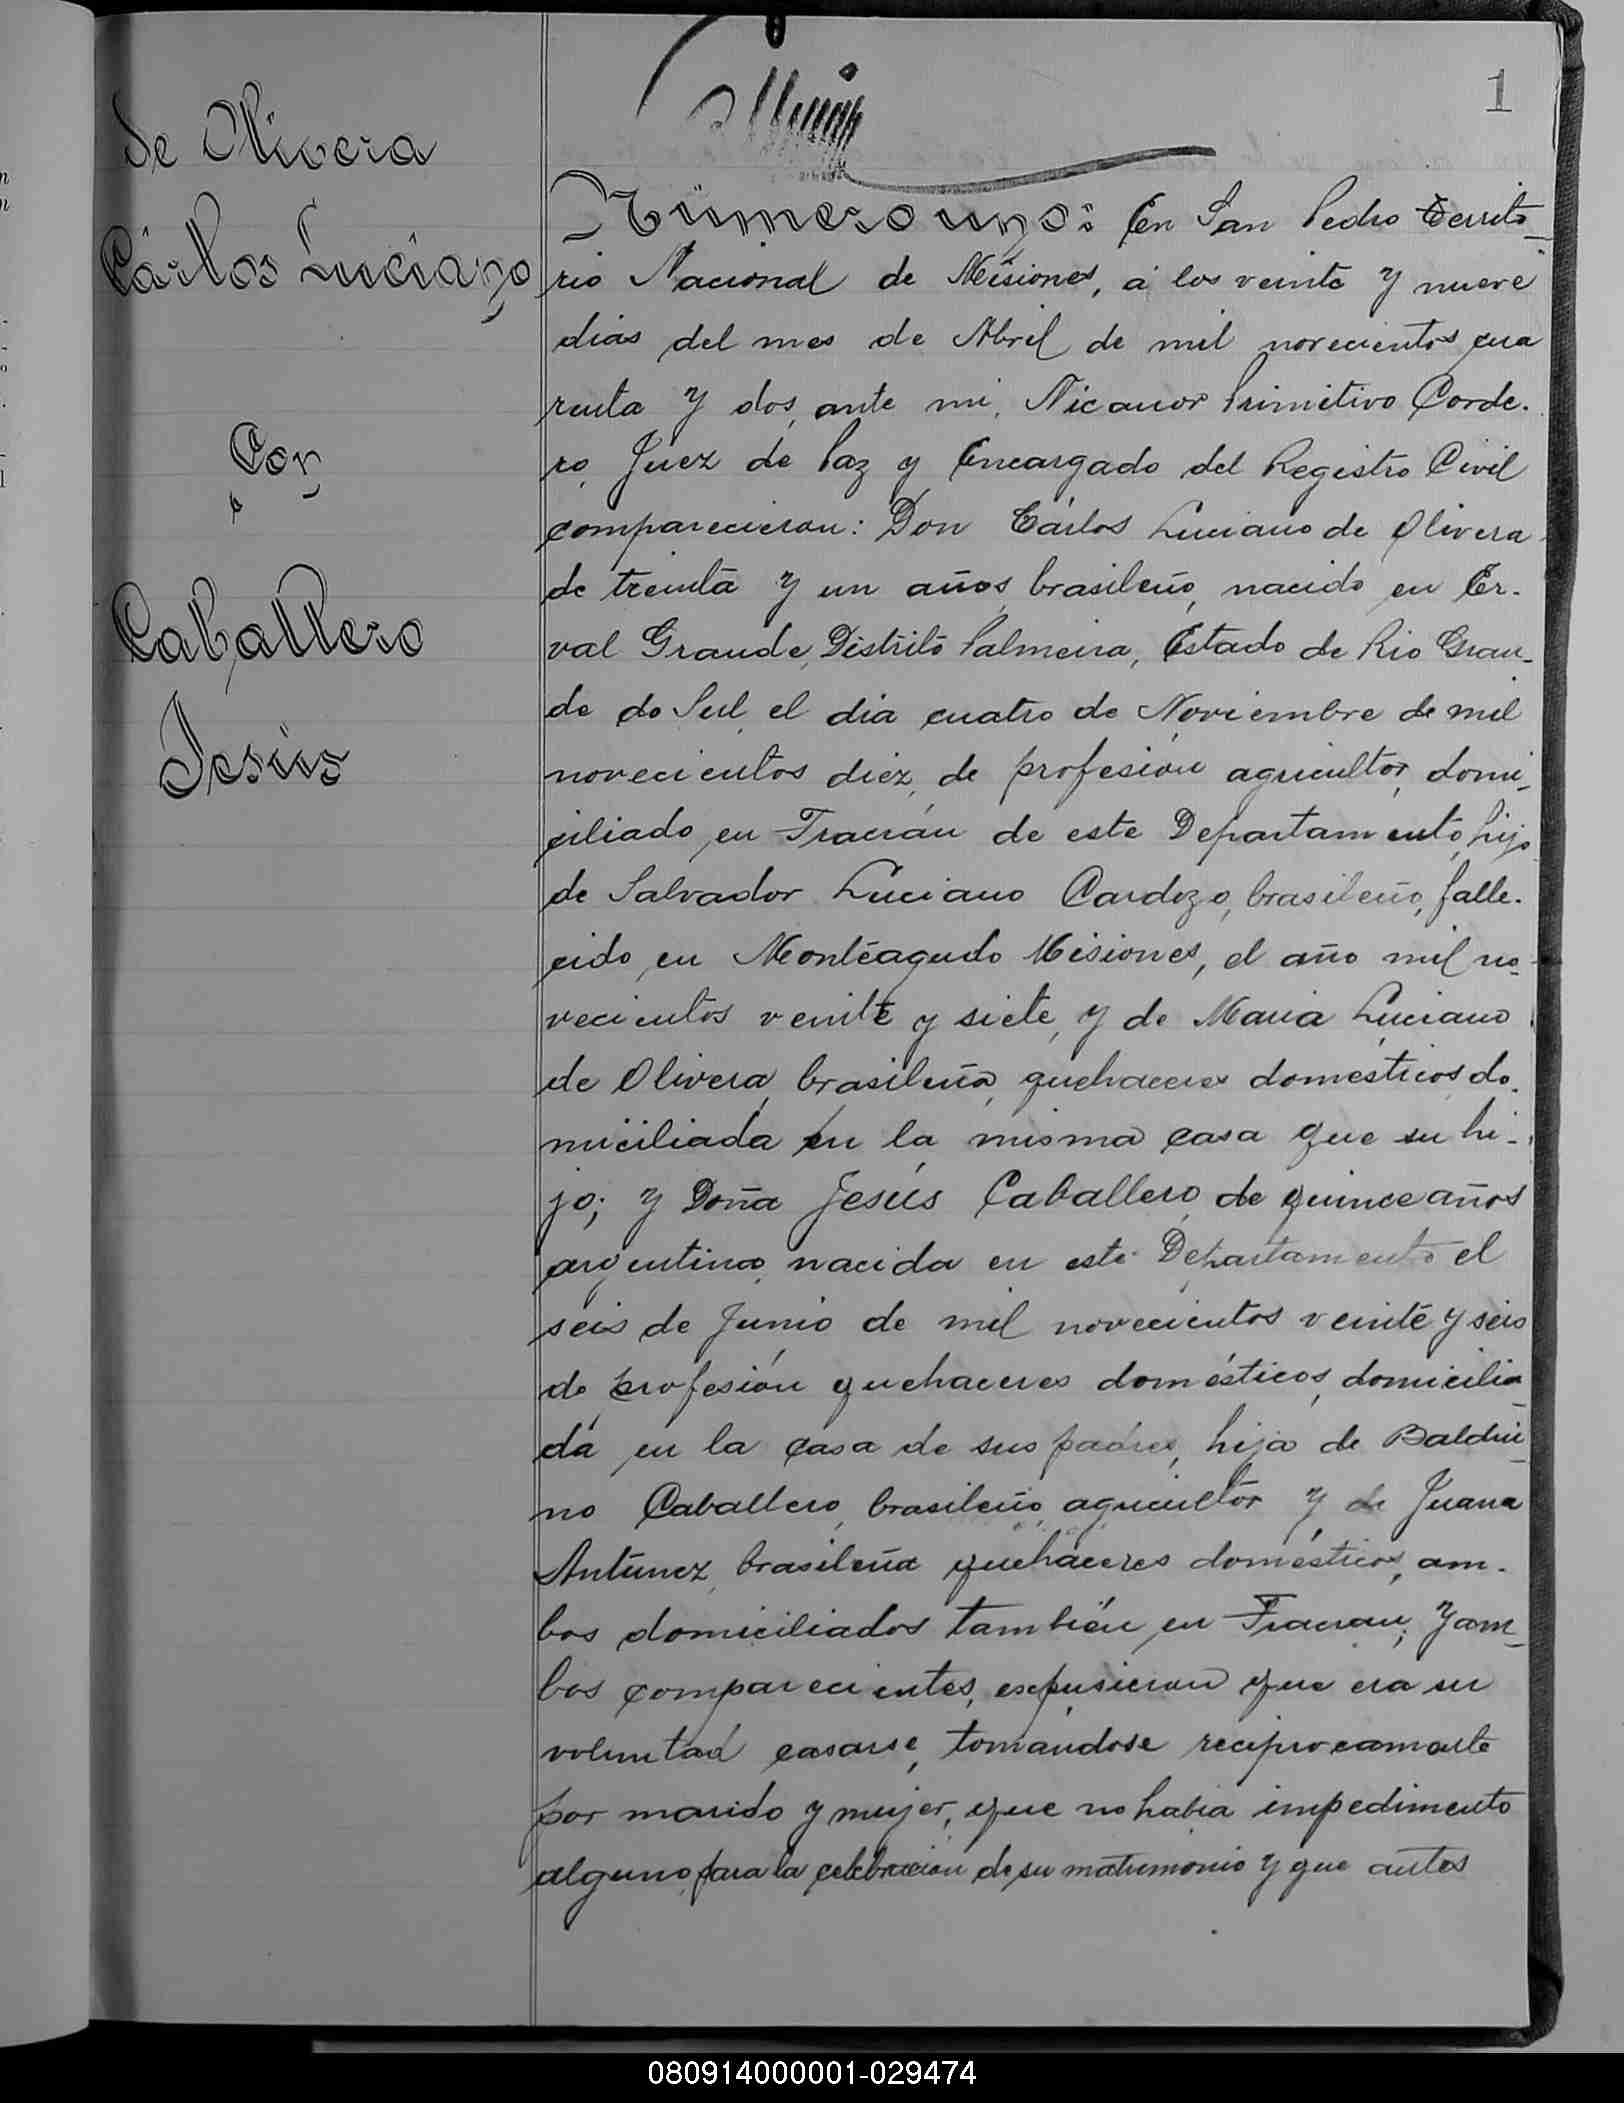 1
de Olivera
Cárlos Luciano
Con
Caballero
Jesús
Número uno: En San Pedro Territo-
rio Nacional de Misiones, á los veinte y nueve
dias del mes de Abril de mil novecientos cua
renta y dos, ante mi, Nicanor Primitivo Corde-
ro, Juez de Paz y Encargado del Registro Civil
comparecieron: Don Cárlos Luciano de Olivera
de treinta y un años, brasileño, nacido en Er-
val Grande, Distrito Palmeira, Estado de Rio Gran-
de do Sul, el dia cuatro de Noviembre de mil
novecientos diez, de profesión agricultor, domi-
ciliado en Tracrán de este Departamento, hijo
de Salvador Luciano Cardozo, brasileño, falle-
cido en Monteagudo Misiones, el año mil no-
vecientos veinte y siete, y de Maria Luciano
de Olivera, brasileña, quehaceres domésticos, do-
miciliada en la misma casa que su hi-
jo; y Doña Jesús Caballero, de quince años
argentina, nacida en este Departamento el
seis de Junio de mil novecientos veinte y seis
de profesión quehaceres domésticos, domicilia
da en la casa de sus padres, hija de Baldui-
no Caballero, brasileño, agricultor y de Juana
Antúnez, brasileña quehaceres domésticos, am-
bos domiciliados también en Tracran; y am-
bos comparecientes, expusieron que era su
voluntad casarse, tomándose reciprocamente
por marido y mujer, que no habia impedimento
alguno para la celebración de su matrimonio y que antes
080914000001-029474